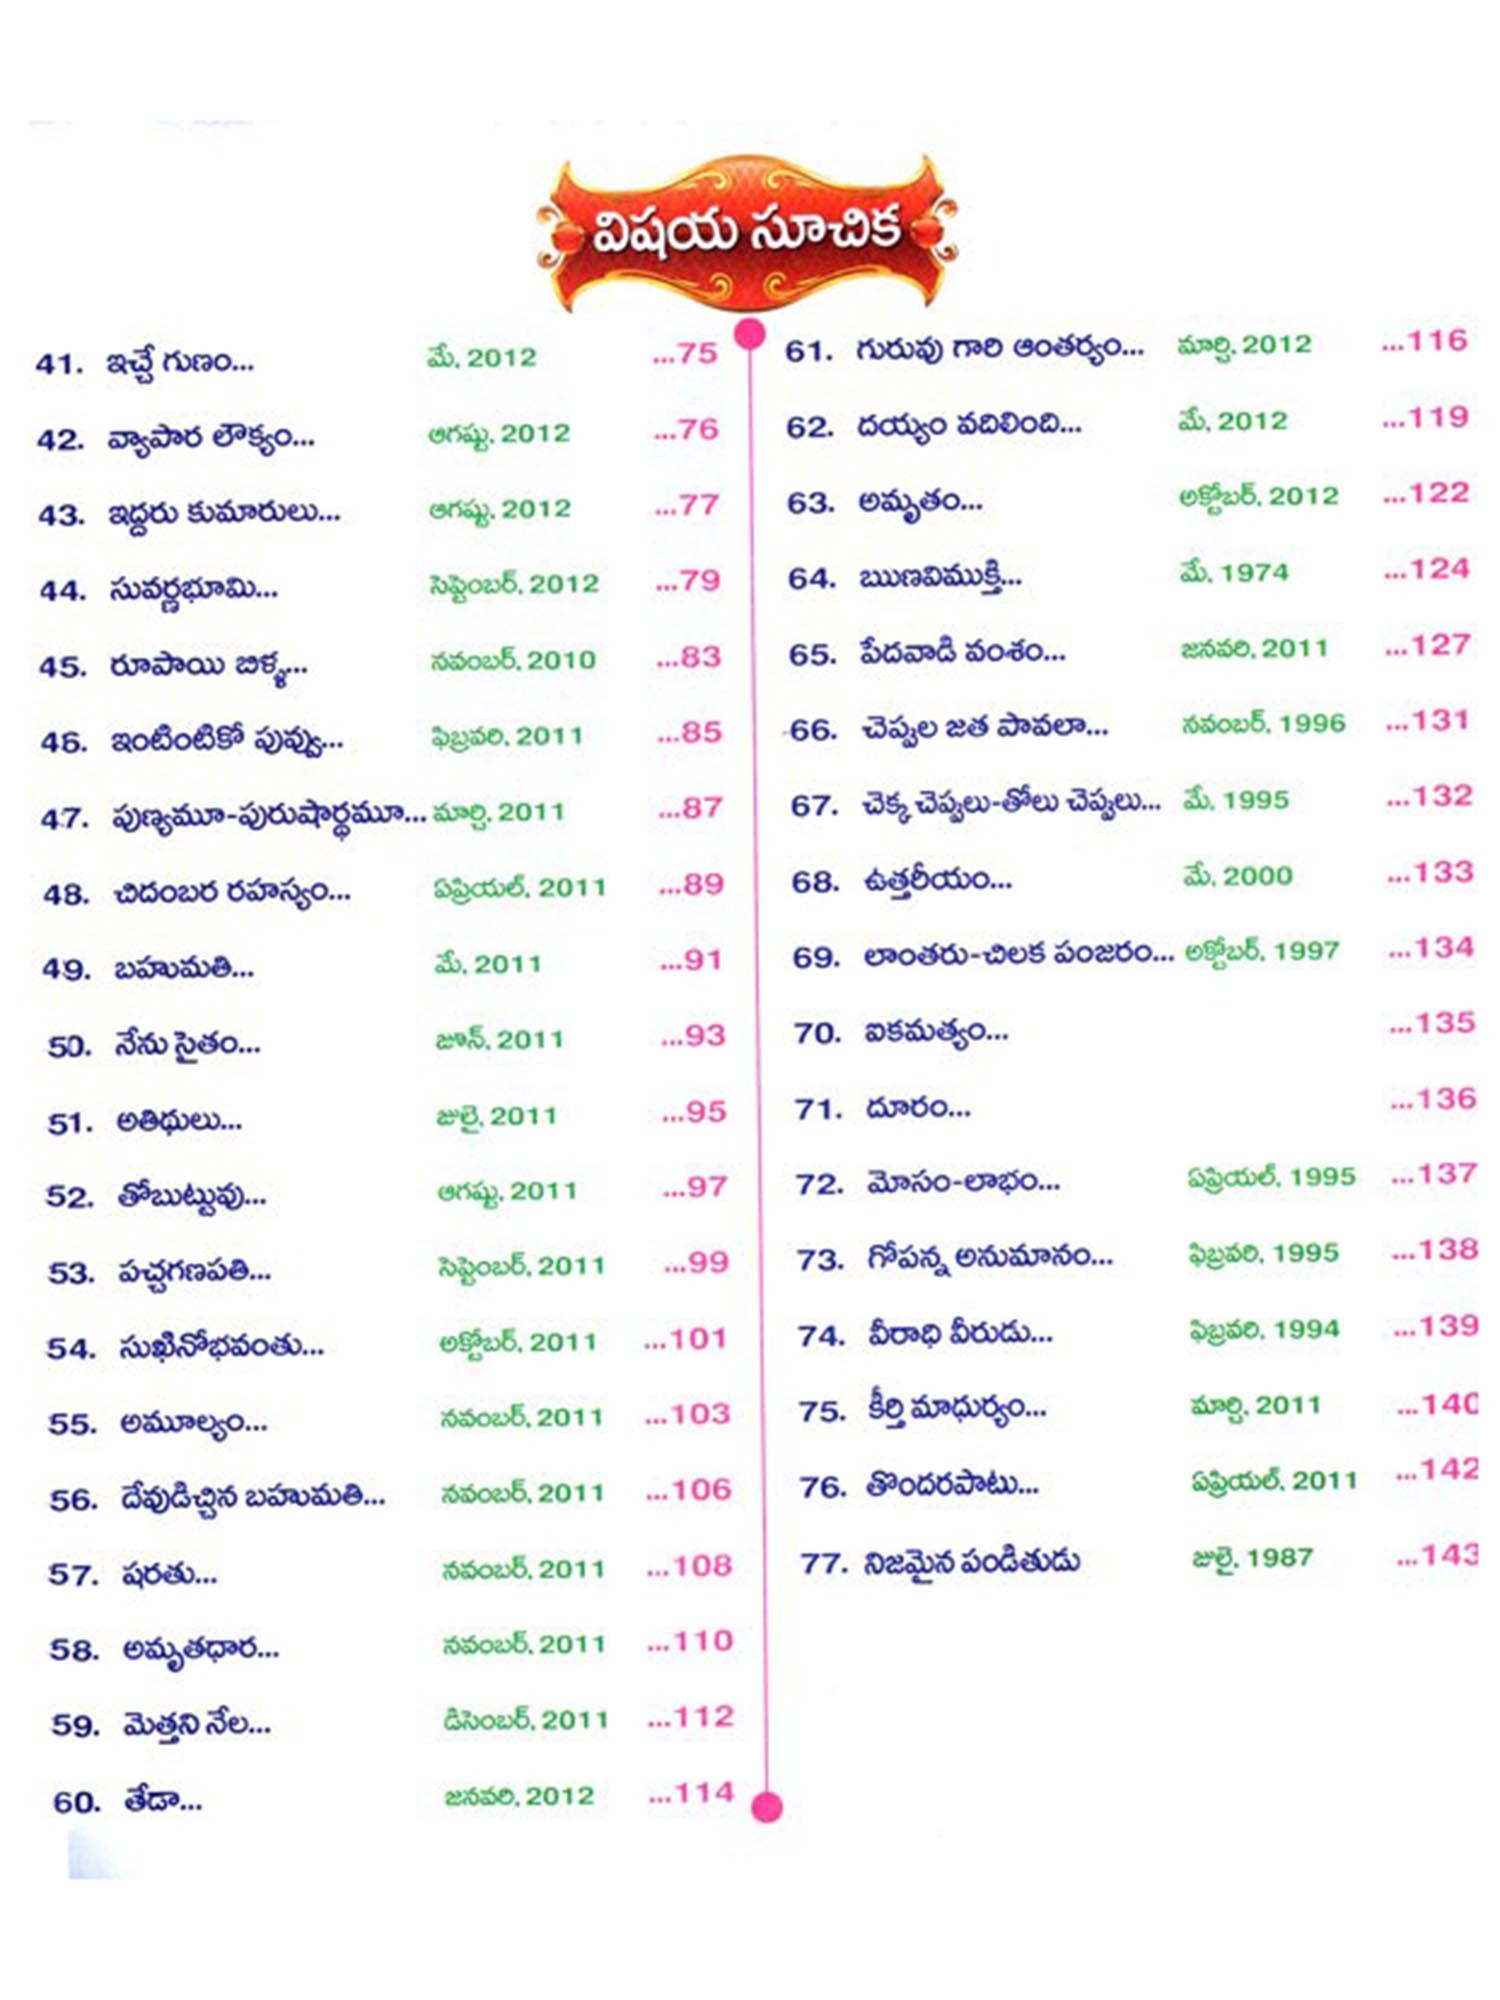 విషయ సూచిక
41. ఇచ్చే గుణం... మే, 2012 ...75
42. వ్యాపార లౌక్యం... ఆగష్టు, 2012 ...76
43. ఇద్దరు కుమారులు... ఆగష్టు, 2012 ...77
44. సువర్ణభూమి... సెప్టెంబర్, 2012 ...79
45. రూపాయి బిళ్ళ... నవంబర్, 2010 ...83
46. ఇంటింటికో పువ్వు... ఫిబ్రవరి, 2011 ...85
47. పుణ్యమూ-పురుషార్థమూ... మార్చి, 2011 ...87
48. చిదంబర రహస్యం... ఏప్రియల్, 2011 ...89
49. బహుమతి... మే, 2011 ...91
50. నేను సైతం... జూన్, 2011 ...93
51. అతిథులు... జులై, 2011 ...95
52. తోబుట్టువు... ఆగష్టు, 2011 ...97
53. పచ్చగణపతి... సెప్టెంబర్, 2011 ...99
54. సుఖీనోభవంతు... అక్టోబర్, 2011 ...101
55. అమూల్యం... నవంబర్, 2011 ...103
56. దేవుడిచ్చిన బహుమతి... నవంబర్, 2011 ...106
57. షరతు... నవంబర్, 2011 ...108
58. అమృతధార... నవంబర్, 2011 ...110
59. మెత్తని నేల... డిసెంబర్, 2011 ...112
60. తేడా... జనవరి, 2012 ...114
61. గురువు గారి ఆంతర్యం... మార్చి, 2012 ...116
62. దయ్యం వదిలింది... మే, 2012 ...119
63. అమృతం... అక్టోబర్, 2012 ...122
64. ఋణవిముక్తి... మే, 1974 ...124
65. పేదవాడి వంశం... జనవరి, 2011 ...127
66. చెప్పుల జత పావలా... నవంబర్, 1996 ...131
67. చెక్క చెప్పులు-తోలు చెప్పులు... మే, 1995 ...132
68. ఉత్తరీయం... మే, 2000 ...133
69. లాంతరు-చిలక పంజరం... అక్టోబర్, 1997 ...134
70. ఐకమత్యం... ...135
71. దూరం... ...136
72. మోసం-లాభం... ఏప్రియల్, 1995 ...137
73. గోపన్న అనుమానం... ఫిబ్రవరి, 1995 ...138
74. వీరాధి వీరుడు... ఫిబ్రవరి, 1994 ...139
75. కీర్తి మాధుర్యం... మార్చి, 2011 ...140
76. తొందరపాటు... ఏప్రియల్, 2011 ...142
77. నిజమైన పండితుడు జులై, 1987 ...143